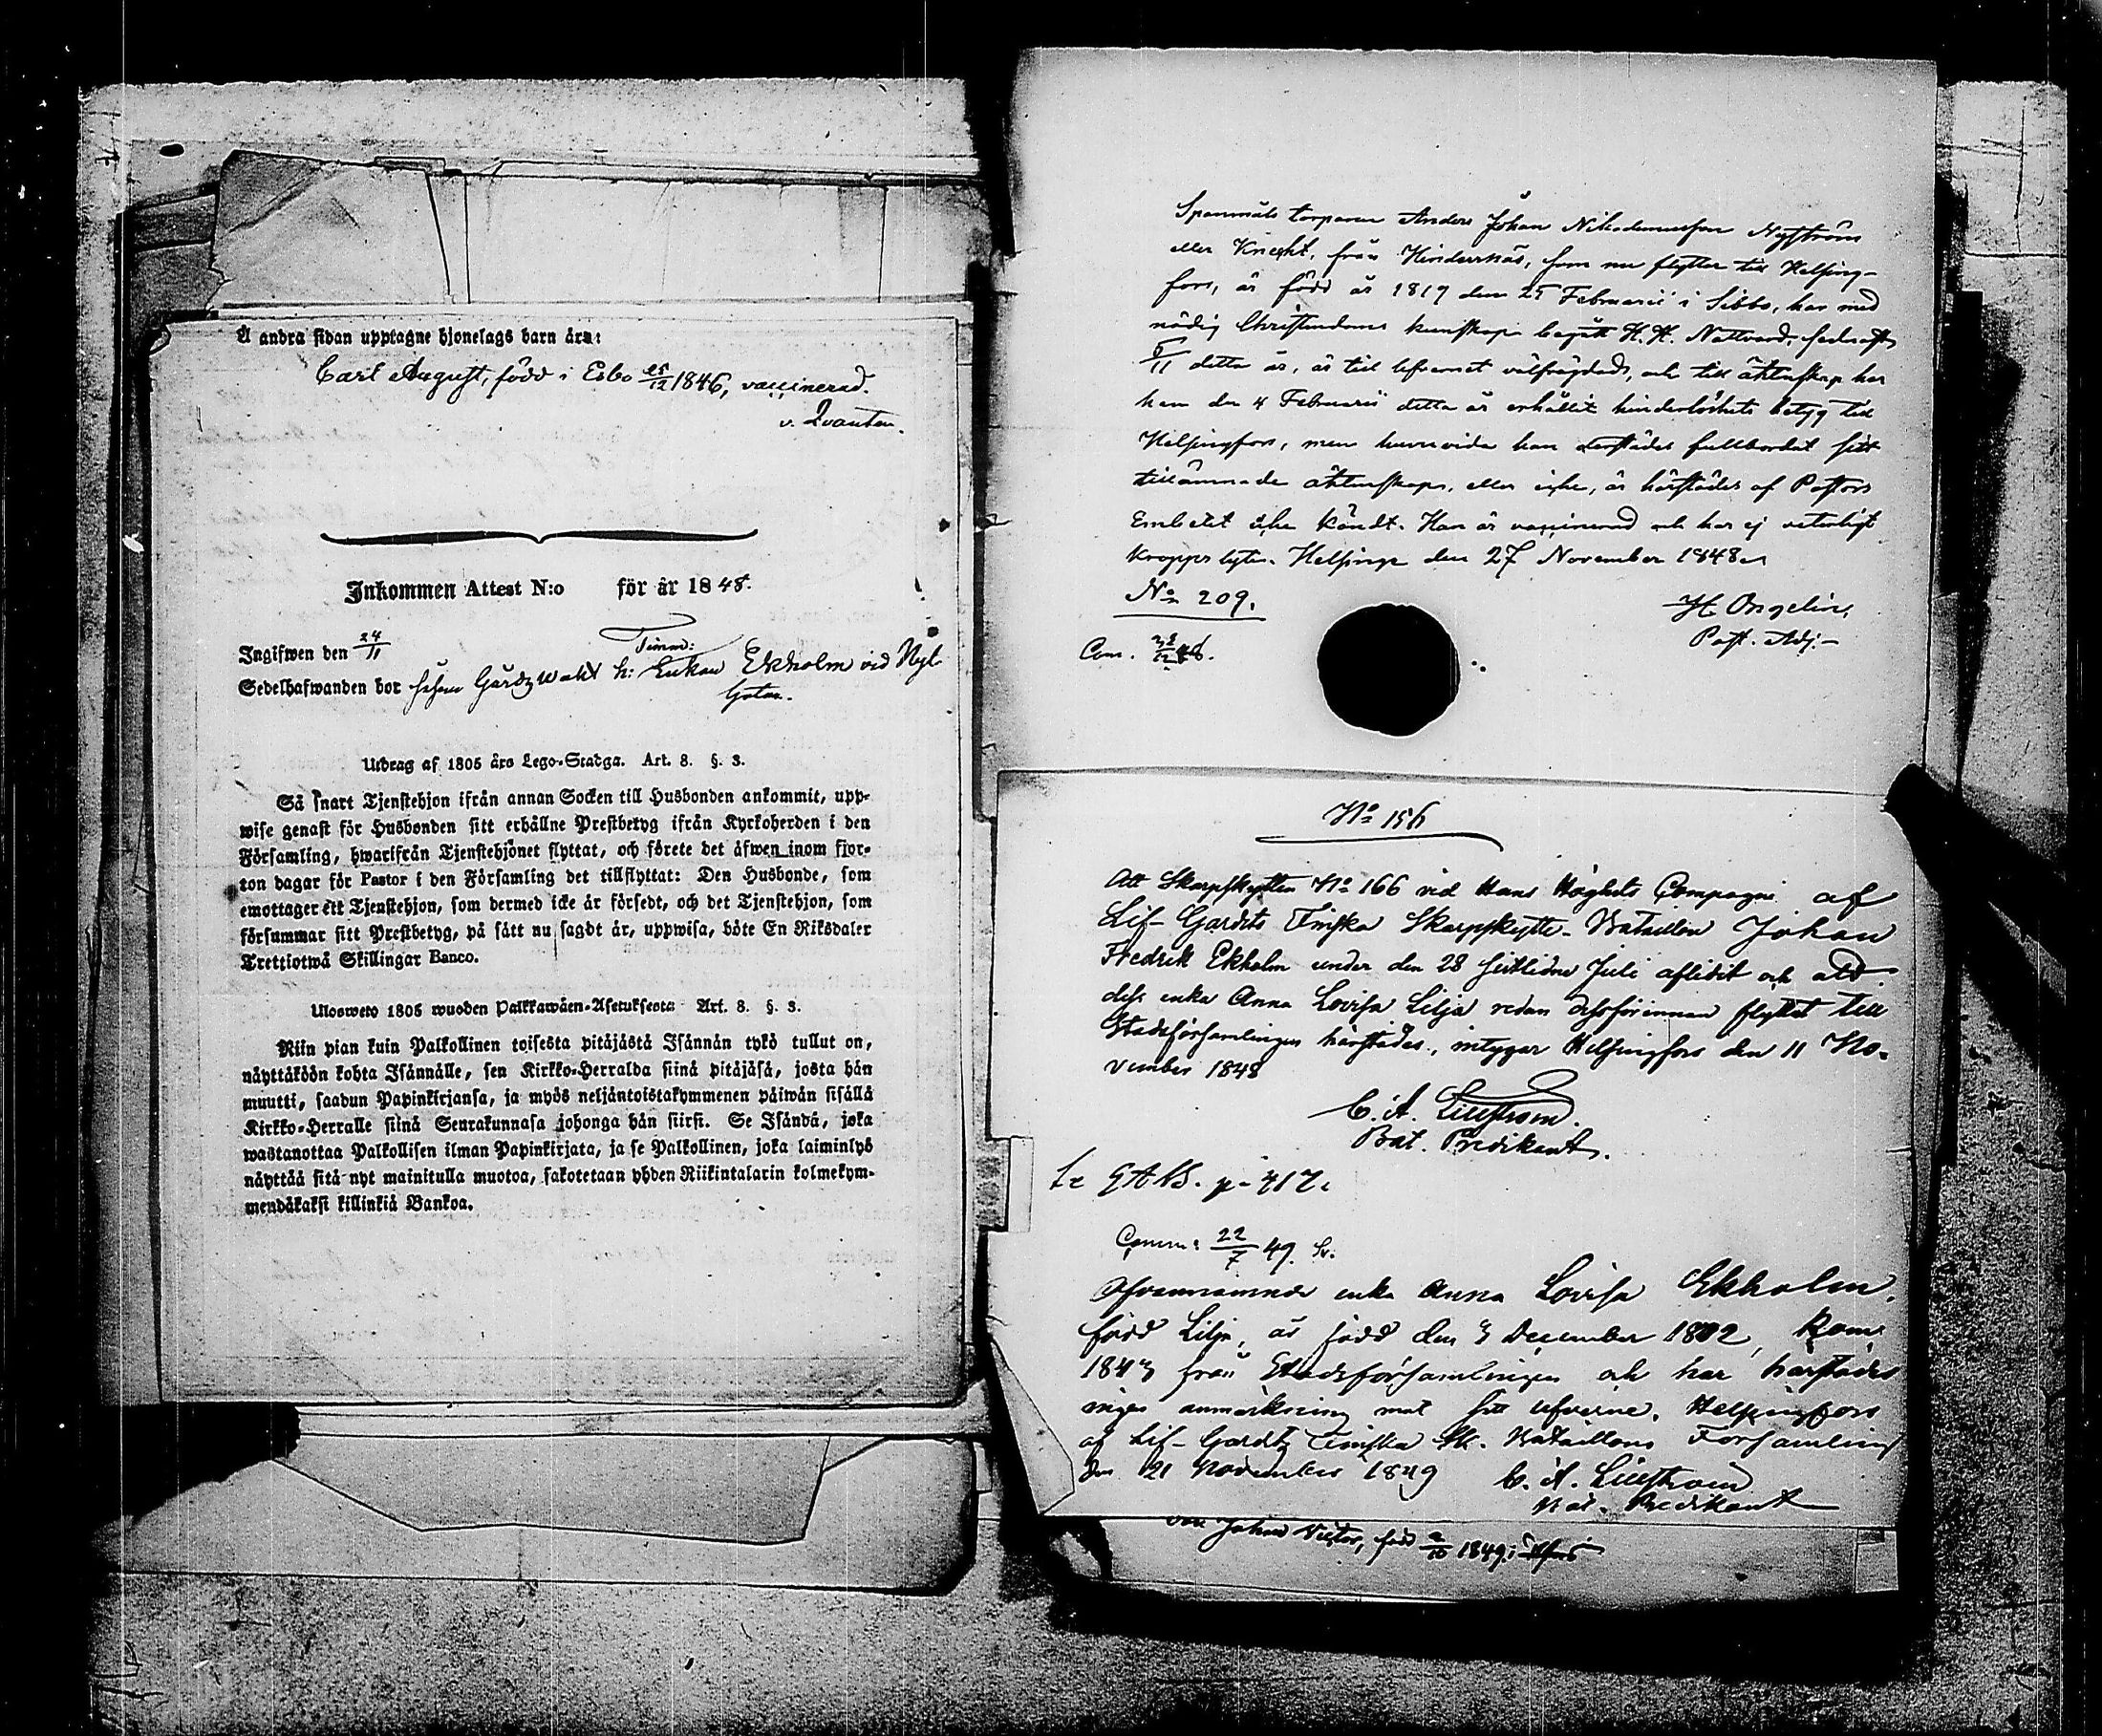 Å andra sidan upptagne hjonelags barn äro:
Carl August, född i Esbo 25/12 1846, vaccinerad.
v. Qvanten.
Inkommen Attest N:o för år 1848.
Ingifwen den 24/11
Timm:
Sedelhafwanden bor hos Enkan Ekholm vid Nyl.
Gatan.
Utdrag af 1805 års Lego-Stadga. Art. 8. §. 3.
Så snart Tjenstehjon ifrån annan Socken till Husbonden ankommit, upp-
wise genast för Husbonden sitt erhållne Prestbetyg ifrån Kyrkoherden i den
Församling, hwarifrån Tjenstehjonet flyttat, och förete det äfwen inom fjor-
ton dagar för Pastor i den Församling det tillflyttat: Den Husbonde, som
emottager ett Tjenstehjon, som dermed icke är försedt, och det Tjenstehjon, som
försummar sitt Prestbetyg, på sätt nu sagdt är, uppwisa, böte En Riksdaler
Trettiotwå Skillingar Banco.
Ulosweto 1805 wuoden Palkkawäen-Asetuksesta Art. 8. §. 3.
Niin pian kuin Palkollinen toisesta pitäjästä Isännän tykö tullut on,
näyttäköön kohta Isännälle, sen Kirkko-Herralda siinä pitäjäsä, josta hän
muutti, saadun Papinkirjansa, ja myös neljäntoistakymmenen päiwän sisällä
Kirkko-Herralle siinä Seurakunnasa johonga hän siirsi. Se Isändä, joka
wastanottaa Palkollisen ilman Papinkirjata, ja se Palkollinen, joka laiminlyö
näyttää sitä nyt mainitulla muotoa, sakotetaan yhden Riikintalarin kolmekym-
mendäkaksi killinkiä Bankoa.
Spanmåls torparen Anders Johan Nikodemusson Nyström
eller Knecht, från Hindersnäs, som nu flyttar till Helsing-
fors, är född år 1819 den 25 Februarii i Sibbo, har med
nödig Christendoms kunskap begått H. H. Nattvard, sednast
5/11 detta år, är till lefvernet välfrägdad, och till äktenskap har
han den 4 Februarii detta år erhållit hinderlöshets betyg till
Helsingfors, men huruvida han derstädes fullbordat sitt
tillämnade äktenskap, eller icke, är härstädes af Pastors
Embetet icke kändt. Han är vaccinerad och har ej veterligt
kropps lyte. Helsinge den 27 November 1848.
N:o 209.
H. Ongelin,
Past. Adj.
Com.
N:o 156
Att Skarpskytten N:o 166 vid Hans Höghets Compagni af
Lif-Gardets Finska Skarpskytte-Bataillon Johan
Fredrik Ekholm under den 28 sistlidne Juli aflidit och att
dess enka Anna Lovisa Lilja redan dessförinnan flyttat till
Stadsförsamlingen härstädes, intygar Helsingfors den 11 No-
vember 1848
C. A. Lillström.
Bat. Predikant.
p. 417.
Comm: 22/7 49.
Ofvannämnde enka Anna Lovisa Ekholm,
född Lilja, är född den 3 December 1802, kom
1843 från Stadsförsamlingen och har härstädes
ingen anmärkning mot sitt lefverne. Helsingfors
af Lif-Gardets Finska Sk. Bataillons Församling
den 21 November 1849
C. A. Lillström
Bat. Predikant
Johan Victor, född 1849 i